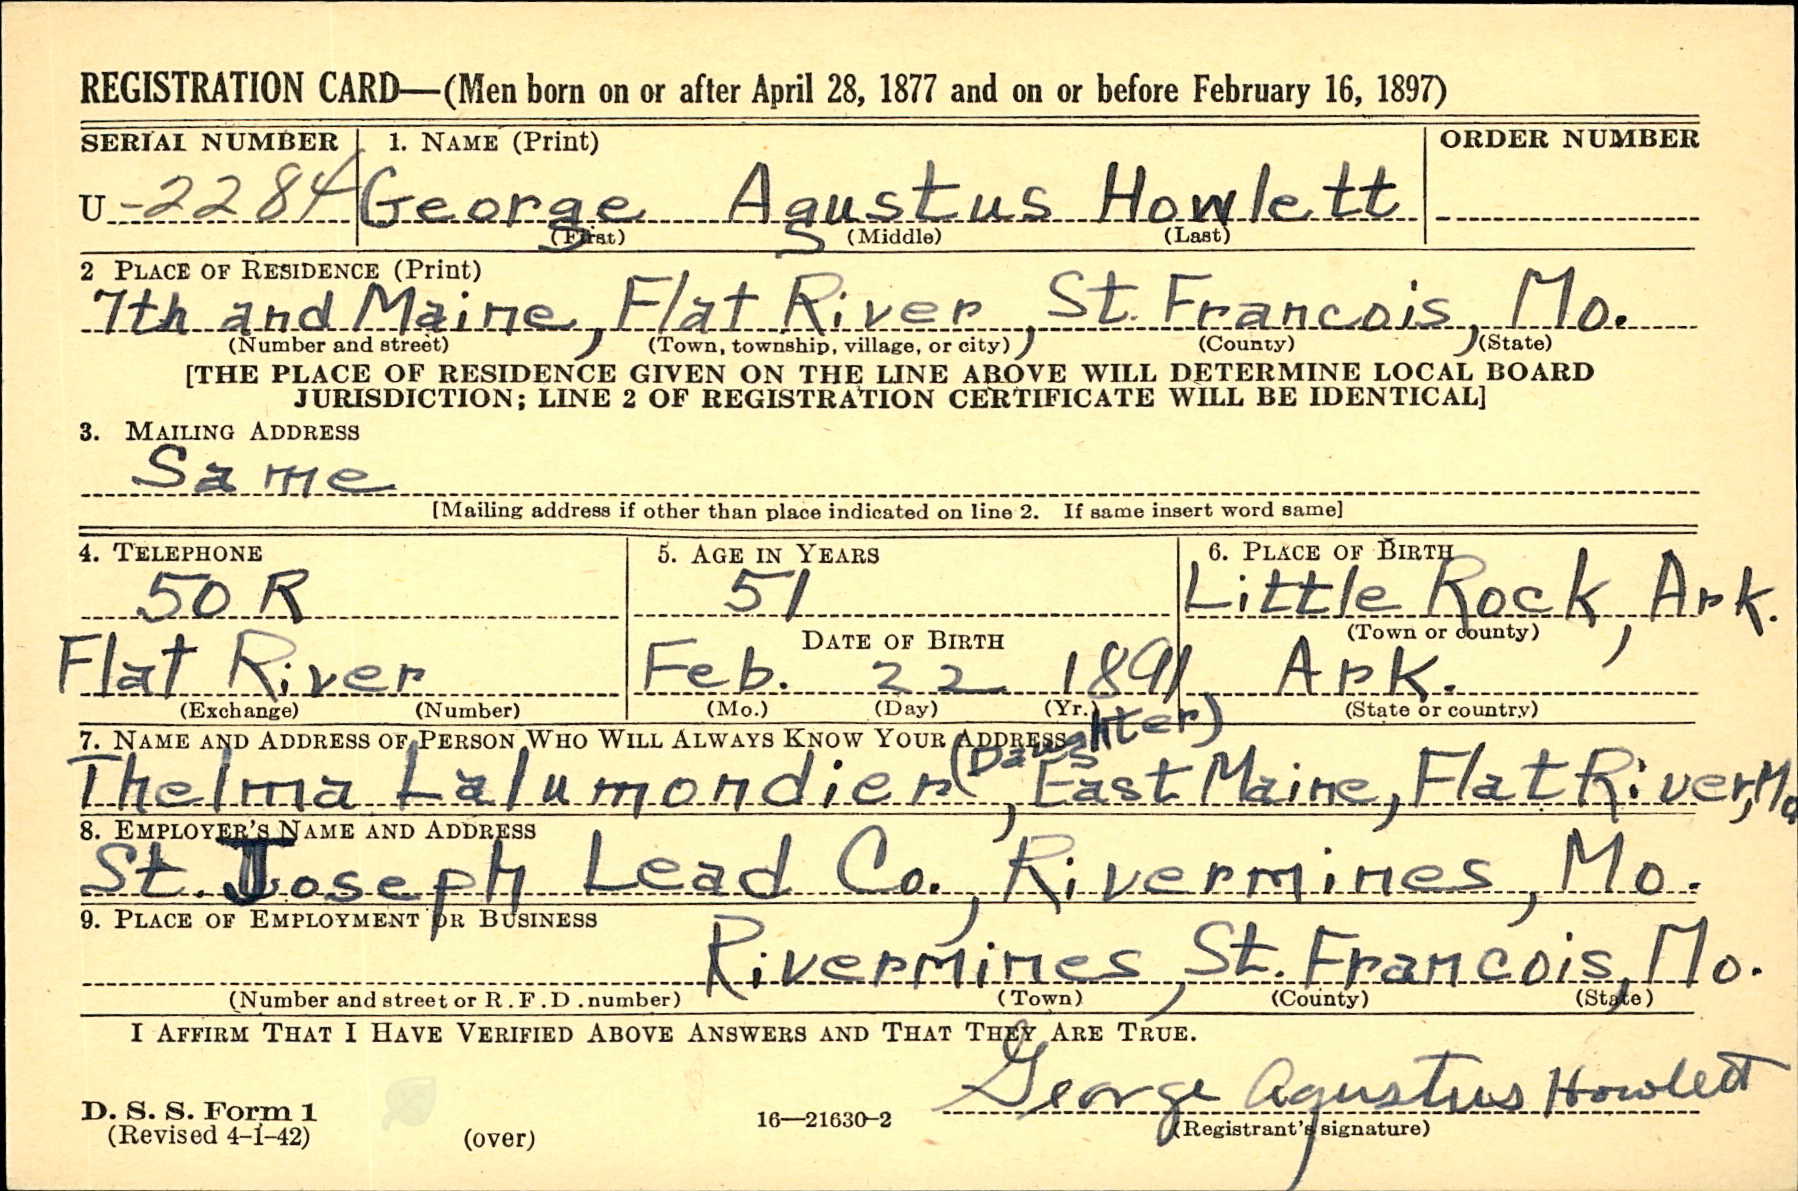 REGISTRATION CARD—(Men born on or after April 28, 1877 and on or before February 16, 1897)
SERIAL NUMBER 1. NAME (Print) ORDER NUMBER
U -2284 George Agustus Howlett
(First) (Middle) (Last)
2 PLACE OF RESIDENCE (Print)
7th and Maine, Flat River, St. Francois, Mo.
(Number and street) (Town, township, village, or city) (County) (State)
[THE PLACE OF RESIDENCE GIVEN ON THE LINE ABOVE WILL DETERMINE LOCAL BOARD
JURISDICTION; LINE 2 OF REGISTRATION CERTIFICATE WILL BE IDENTICAL]
3. MAILING ADDRESS
Same
[Mailing address if other than place indicated on line 2. If same insert word same]
4. TELEPHONE 5. AGE IN YEARS 6. PLACE OF BIRTH
50 R 51 Little Rock, Ark.
DATE OF BIRTH (Town or county)
Flat River Feb. 22 1891 Ark.
(Exchange) (Number) (Mo.) (Day) (Yr.) (State or country)
7. NAME AND ADDRESS OF PERSON WHO WILL ALWAYS KNOW YOUR ADDRESS
Thelma Lalumondier (Daughter), East Maine, Flat River, Mo
8. EMPLOYER'S NAME AND ADDRESS
St. Joseph Lead Co., Rivermines, Mo.
9. PLACE OF EMPLOYMENT OR BUSINESS
Rivermines, St. Francois, Mo.
(Number and street or R.F.D. number) (Town) (County) (State)
I AFFIRM THAT I HAVE VERIFIED ABOVE ANSWERS AND THAT THEY ARE TRUE.
George Agustus Howlett
D. S. S. Form 1 16—21630-2 (Registrant's signature)
(Revised 4-1-42) (over)